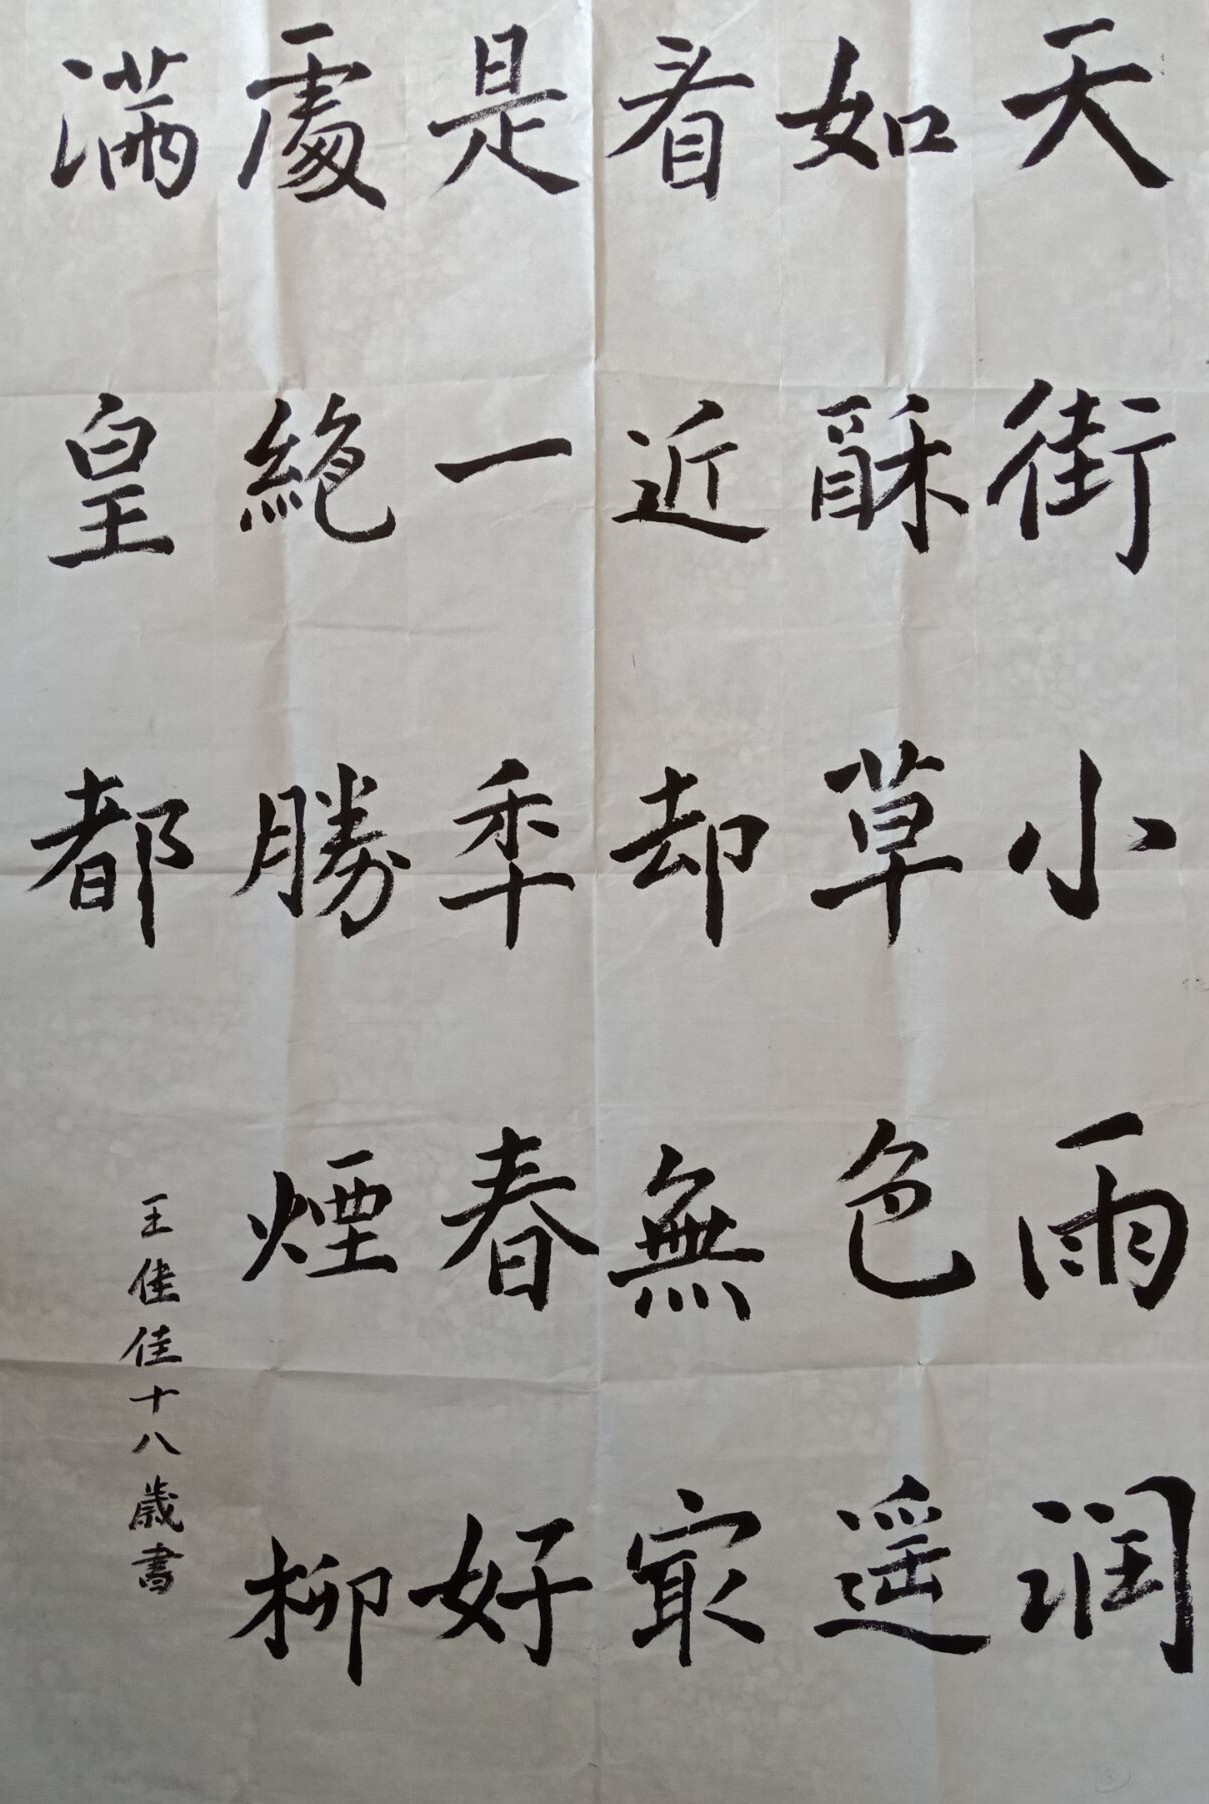 天街小雨润
如酥草色遥
看近却無寂
是一季春好
處絕勝煙柳
满皇都
王佳佳十八歲書